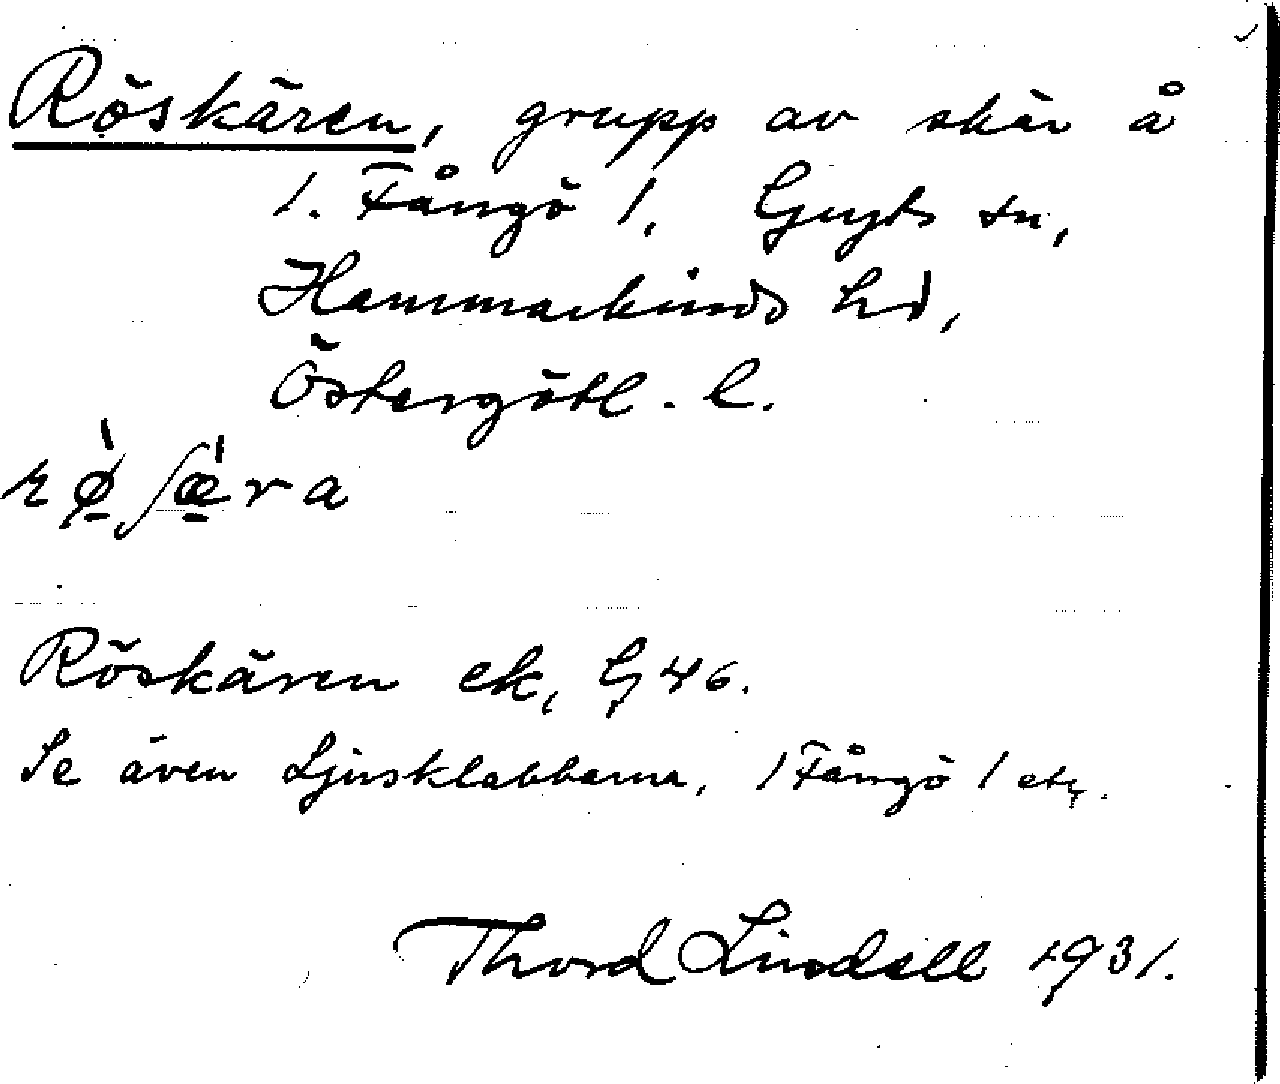 Röskären, grupp av skär å
1. Fångö 1. Gryts sn,
Hammarkinds hd,
Östergötl. l.
rø̀ʃæ̀ra
Röskären ek, G 46.
Se även Ljusklabbarna, 1 Fångö 1 etc.
Thord Lindell 1931.